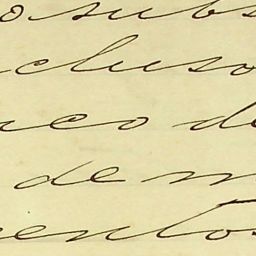 o subs
cluso
aco de
de m
entos